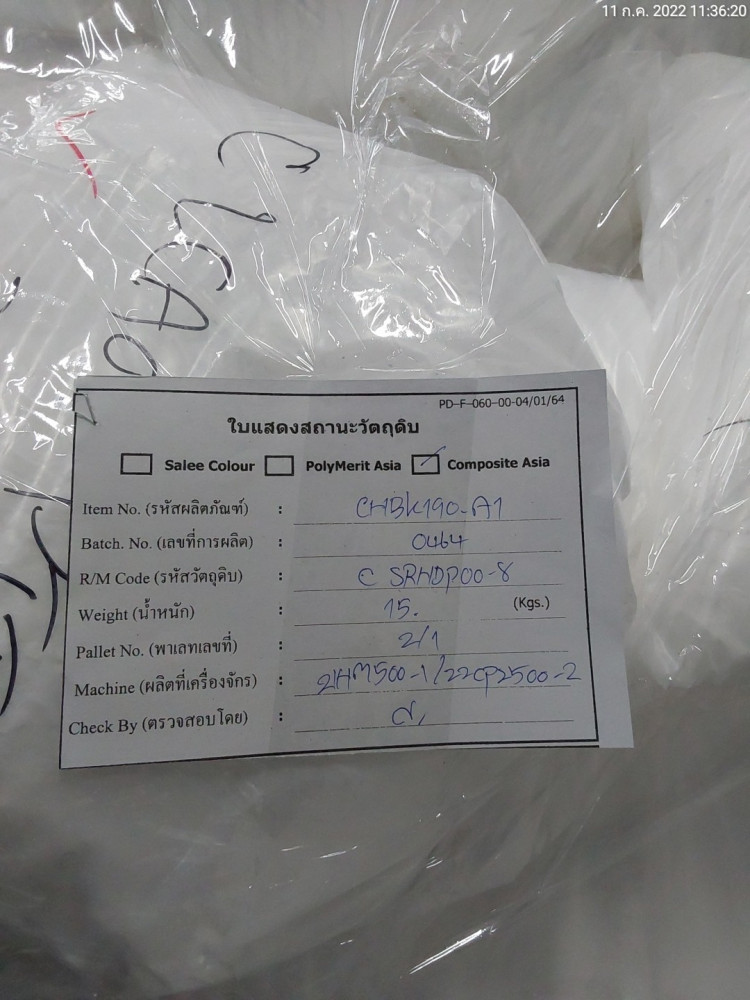 11 ก.ค. 2022 11:36:20
PD-F-060-00-04/01/64
ใบแสดงสถานะวัตถุดิบ
Salee Colour PolyMerit Asia Composite Asia
Item No. (รหัสผลิตภัณฑ์) : CHBK190-A1
Batch. No. (เลขที่การผลิต) : 0464
R/M Code (รหัสวัตถุดิบ) : C SRHDP00-8
Weight (น้ำหนัก) : 15. (Kgs.)
Pallet No. (พาเลทเลขที่) : 2/1
Machine (ผลิตที่เครื่องจักร) : 2HM500-1/22CP2500-2
Check By (ตรวจสอบโดย) :